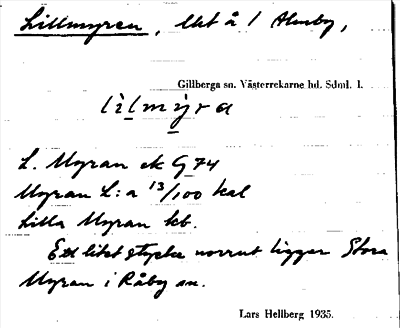 Lillmyren, litet å / Almby,
Gillberga sn. Västerrekarne hd. Sdml. l.
lìlmýra
L. Myran ek G 74
Myran L:a 13/100 kal
Lilla Myran kb.
Ett litet stycke norrut ligger Stora
Myran i Råby sn.
Lars Hellberg 1935.